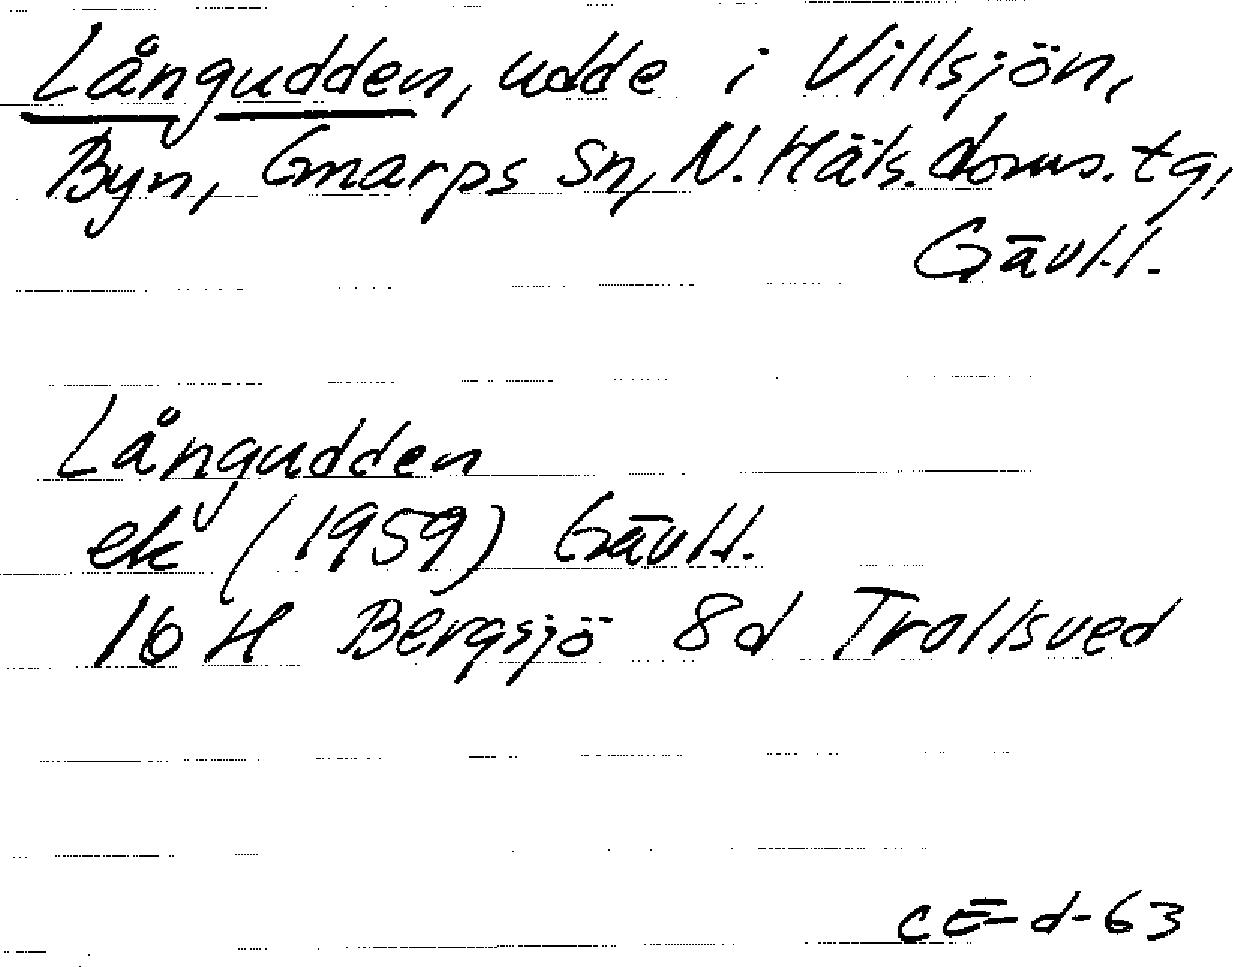 Långudden, udde i Villsjön,
Byn, Gnarps sn, N. Häls. doms. tg,
Gävl.l.
Långudden
ek (1959) Gävl.l.
16 H Bergsjö 8d Trollsved
CE-d-63